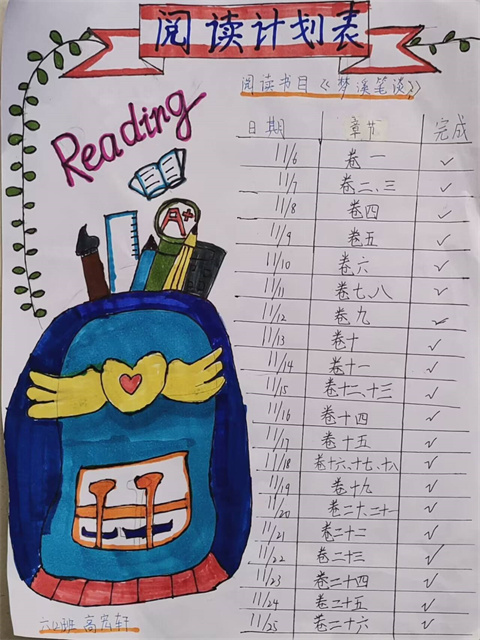 阅读计划表
阅读书目《梦溪笔谈》
Reading
A+
日期 章节 完成
11/6 卷一 ✓
11/7 卷二、三 ✓
11/8 卷四 ✓
11/9 卷五 ✓
11/10 卷六 ✓
11/11 卷七、八 ✓
11/12 卷九 ✓
11/13 卷十 ✓
11/14 卷十一 ✓
11/15 卷十二、十三 ✓
11/16 卷十四 ✓
11/17 卷十五 ✓
11/18 卷十六、十七、十八 ✓
11/19 卷十九 ✓
11/20 卷二十、二十一 ✓
11/21 卷二十二 ✓
11/22 卷二十三 ✓
11/23 卷二十四 ✓
11/24 卷二十五 ✓
11/25 卷二十六 ✓